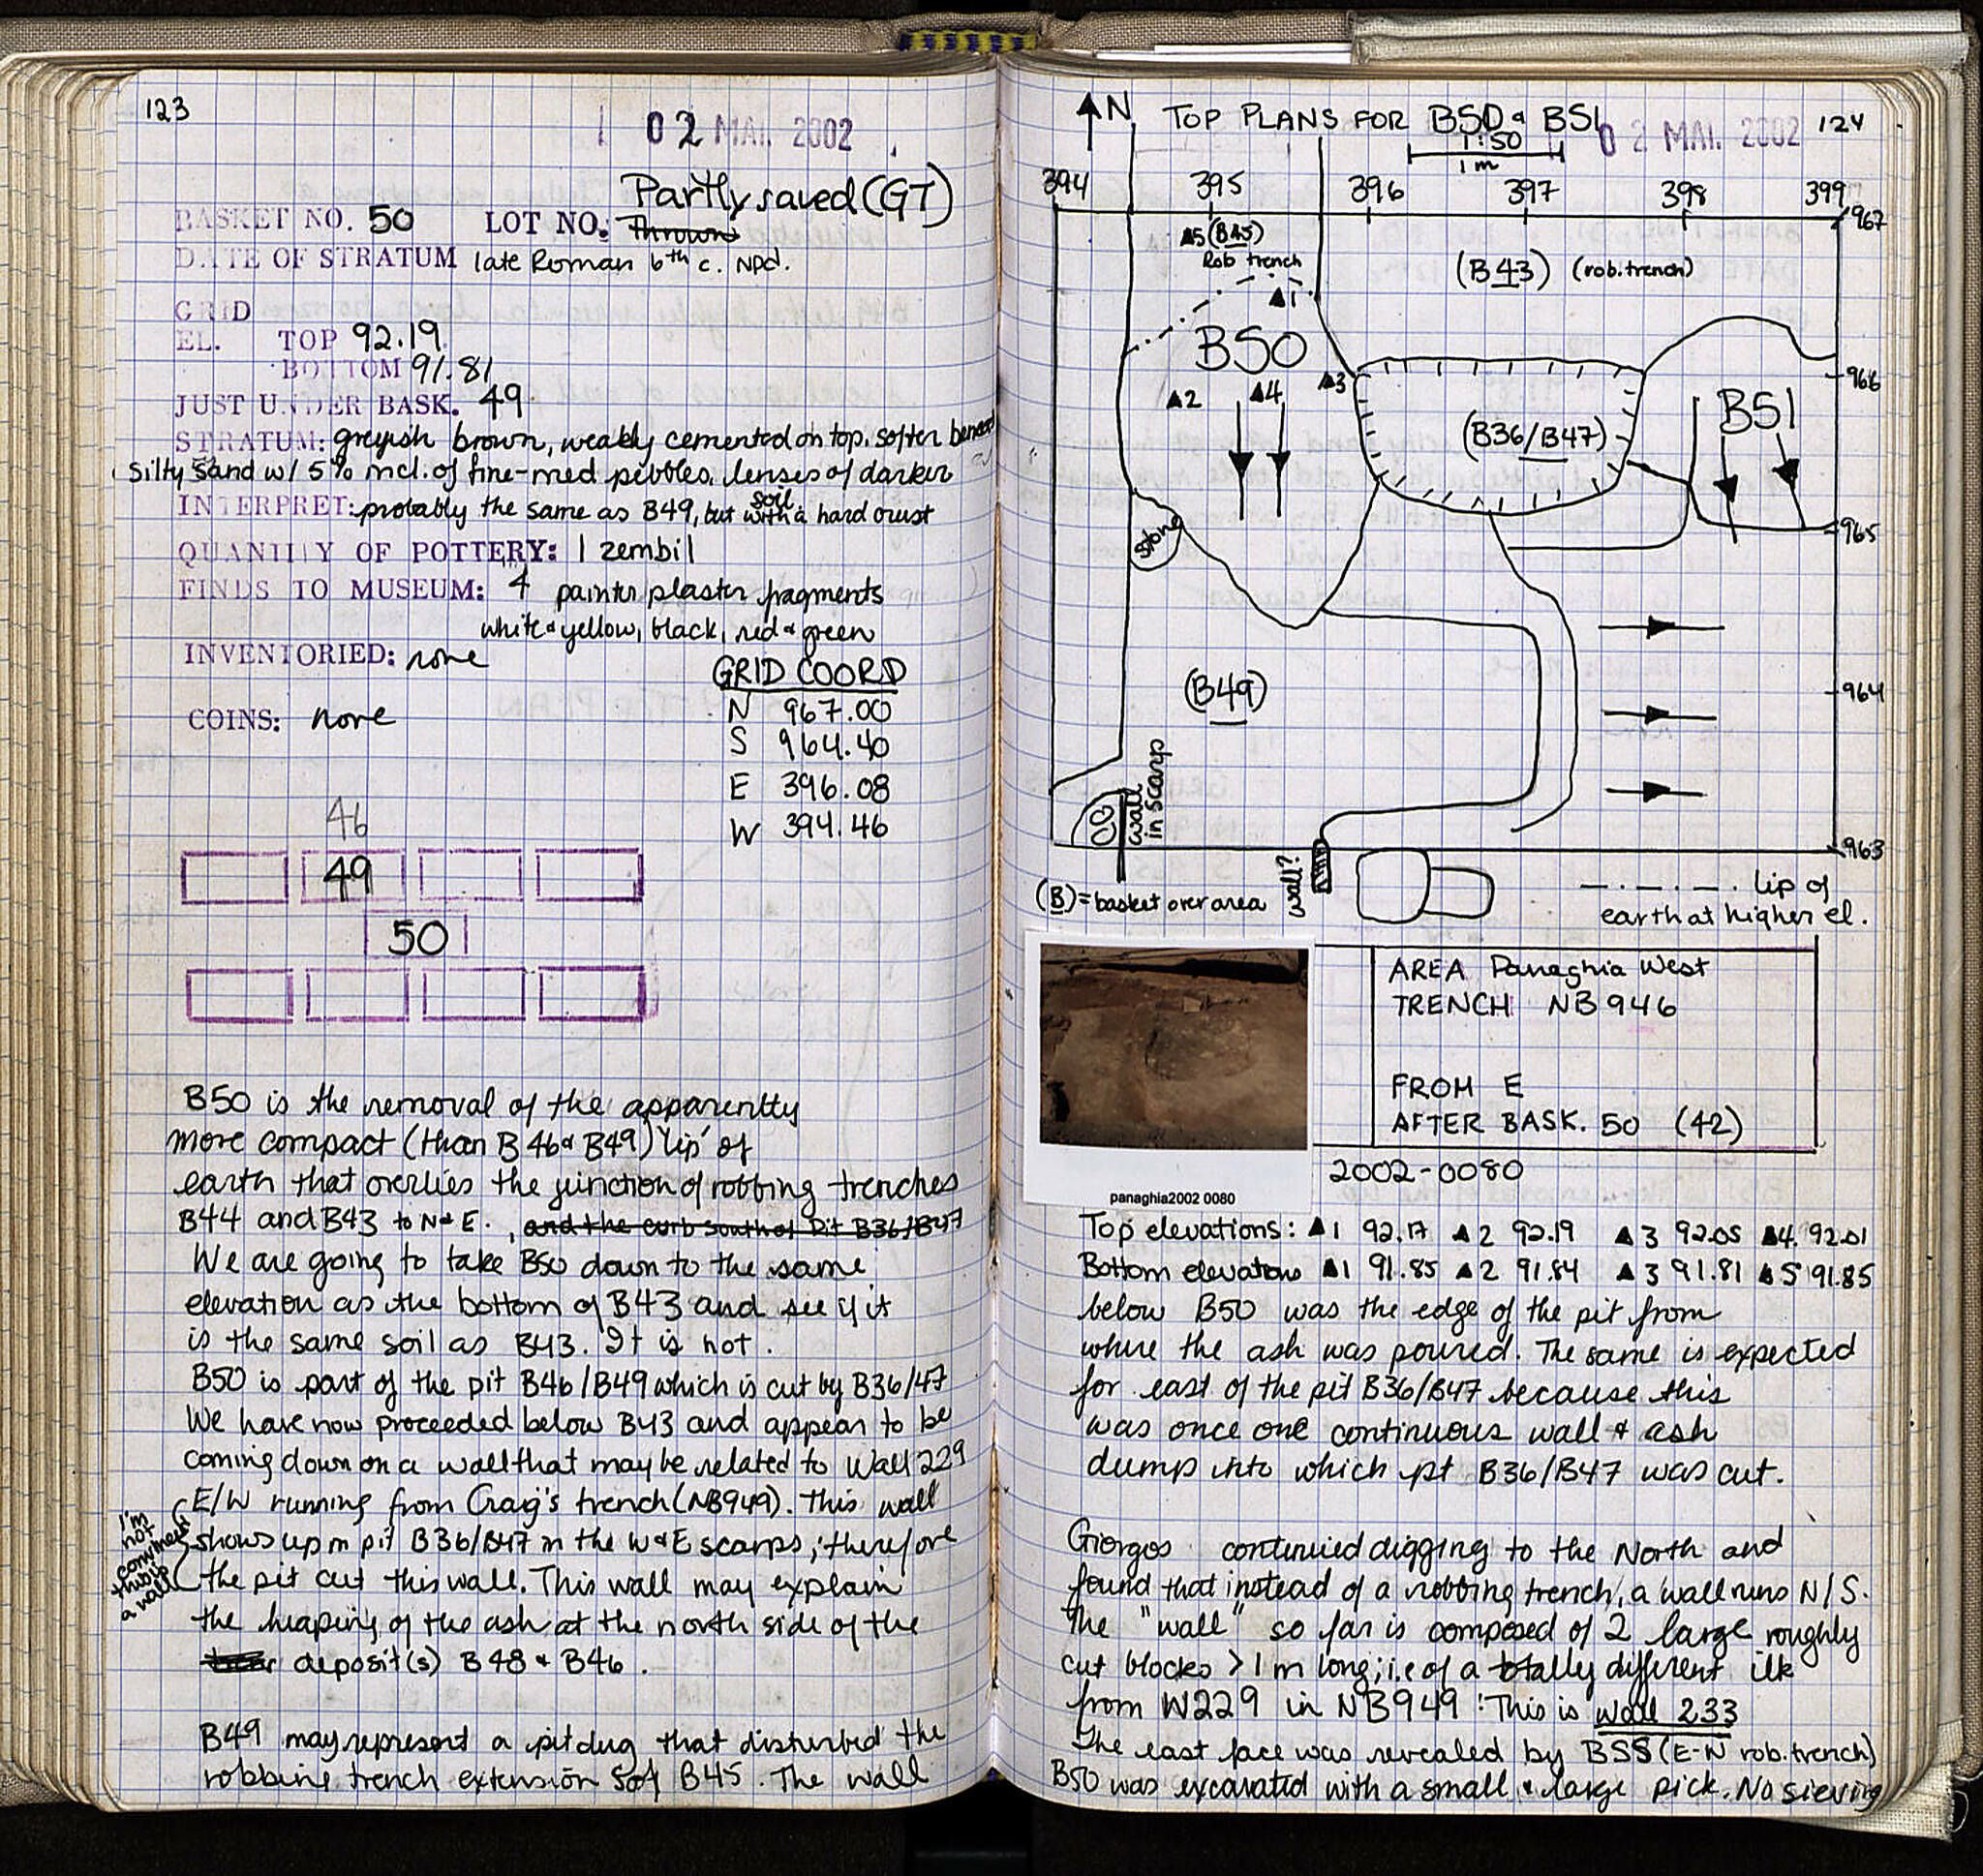 123
02 MAI. 2002
Partly saved (GT)
BASKET NO. 50 LOT NO: Thrown
DATE OF STRATUM late Roman 6th c. NPd.
GRID
EL. TOP 92.19
BOTTOM 91.81
JUST UNDER BASK. 49
STRATUM: greyish brown, weakly cemented on top, softer beneath
silty sand w/ 5% incl. of fine-med pebbles, lenses of darker
soil
INTERPRET: probably the same as B49, but with a hard crust
QUANTITY OF POTTERY: 1 zembil
FINDS TO MUSEUM: 4 painter plaster fragments
white & yellow, black, red & green
INVENTORIED: none
COINS: none
GRID COORD
N 967.00
S 964.40
E 396.08
W 394.46
46
49
50
B50 is the removal of the apparently
more compact (than B46 & B49) 'lip' of
earth that overlies the junction of robbing trenches
B44 and B43 to N & E. , and the curb south of Pit B36/B47
We are going to take B50 down to the same
elevation as the bottom of B43 and see if it
is the same soil as B43. It is not.
B50 is part of the pit B46/B49 which is cut by B36/47
We have now proceeded below B43 and appear to be
coming down on a wall that may be related to Wall 229
E/W running from Craig's trench (NB949). This wall
shows up in pit B36/B47 in the W & E scarps; therefore
the pit cut this wall. This wall may explain
I'm
not
convinced
this is
a wall
the heaping of the ash at the north side of the
deposit(s) B48 & B46.
B49 may represent a pit dug that disturbed the
robbing trench extension S of B45. The wall
N TOP PLANS FOR B50 & B51
1:50
1 m
02 MAI. 2002
124
394 395 396 397 398 399
967
5 (B45)
Rob trench
(B43) (rob. trench)
1
B50
2 4 3
966
(B36/B47)
B51
965
stone
964
(B49)
wall
in scarp
963
wall?
(B) = basket over area
lip of
earth at higher el.
AREA Panaghia West
TRENCH NB 946
FROM E
AFTER BASK. 50 (42)
2002-0080
panaghia2002 0080
Top elevations: ▲1 92.17 ▲2 92.19 ▲3 92.05 ▲4. 92.01
Bottom elevations ▲1 91.85 ▲2 91.84 ▲3 91.81 ▲5 91.85
below B50 was the edge of the pit from
where the ash was poured. The same is expected
for east of the pit B36/B47 because this
was once one continuous wall & ash
dump into which pt B36/B47 was cut.
Giorgos continued digging to the North and
found that instead of a robbing trench, a wall runs N/S.
The "wall" so far is composed of 2 large roughly
cut blocks > 1 m long; i.e of a totally different ilk
from W229 in NB949! This is Wall 233
The east face was revealed by B55 (E-N rob. trench)
B50 was excavated with a small & large pick. No sieving